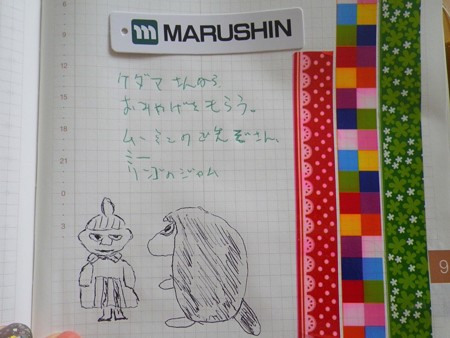 m MARUSHIN
ケダマさんから
おみやげをもらう。
ムーミンのご先ぞさん。
ミー
リンゴのジャム
12
15
18
21
0
3
9